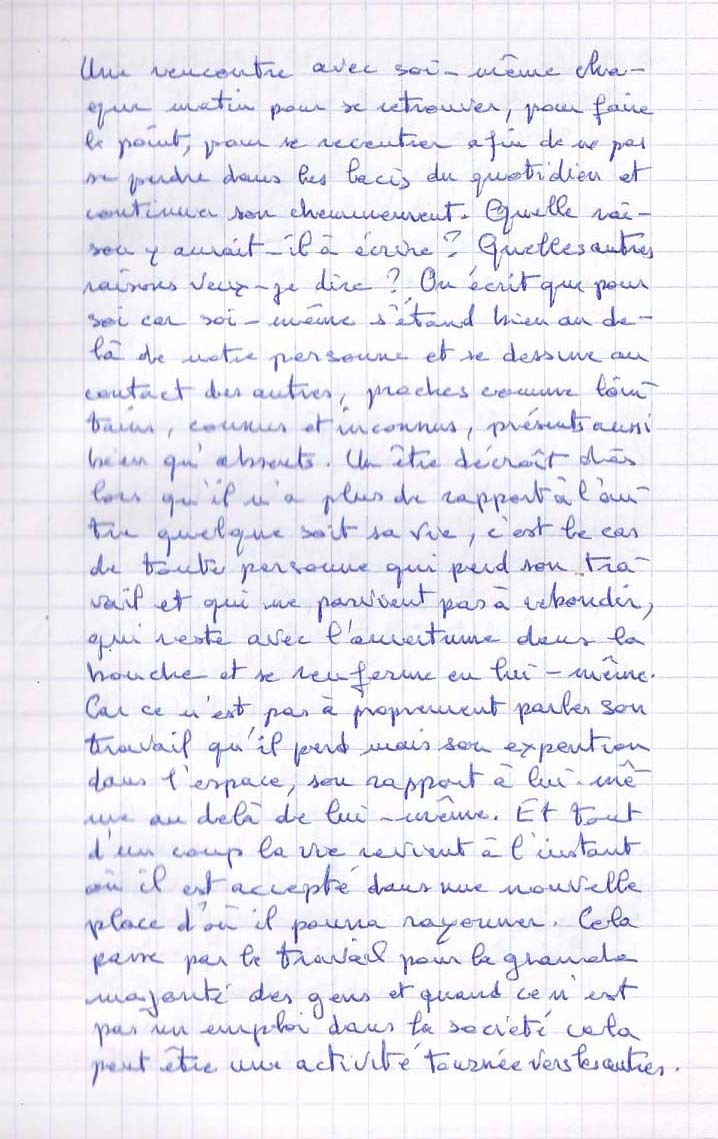 Une rencontre avec soi-même cha-
que matin pour se retrouver, pour faire
le point, pour se recentrer afin de ne pas
se perdre dans les lacis du quotidien et
continuer son cheminement. Quelle rai-
son y aurait-il à écrire ? Quelles autres
raisons veux-je dire ? On écrit que pour
soi car soi-même s'étand bien au de-
là de notre personne et se dessine au
contact des autres, proches comme loin-
tains, connus et inconnus, présents aussi
bien qu'absents. Un être décroît dès
lors qu'il n'a plus de rapport à l'au-
tre quelque soit sa vie, c'est le cas
de toute personne qui perd son tra-
vail et qui ne parvient pas à rebondir,
qui reste avec l'amertume dans la
bouche et se renferme en lui-même.
Car ce n'est pas à proprement parler son
travail qu'il perd mais son expention
dans l'espace, son rapport à lui-mê
me au delà de lui-même. Et tout
d'un coup la vie revient à l'instant
où il est accepté dans une nouvelle
place d'où il pourra rayonner. Cela
passe par le travail pour la grande
majorité des gens et quand ce n'est
pas un emploi dans la société cela
peut être une activité tournée vers les autres.